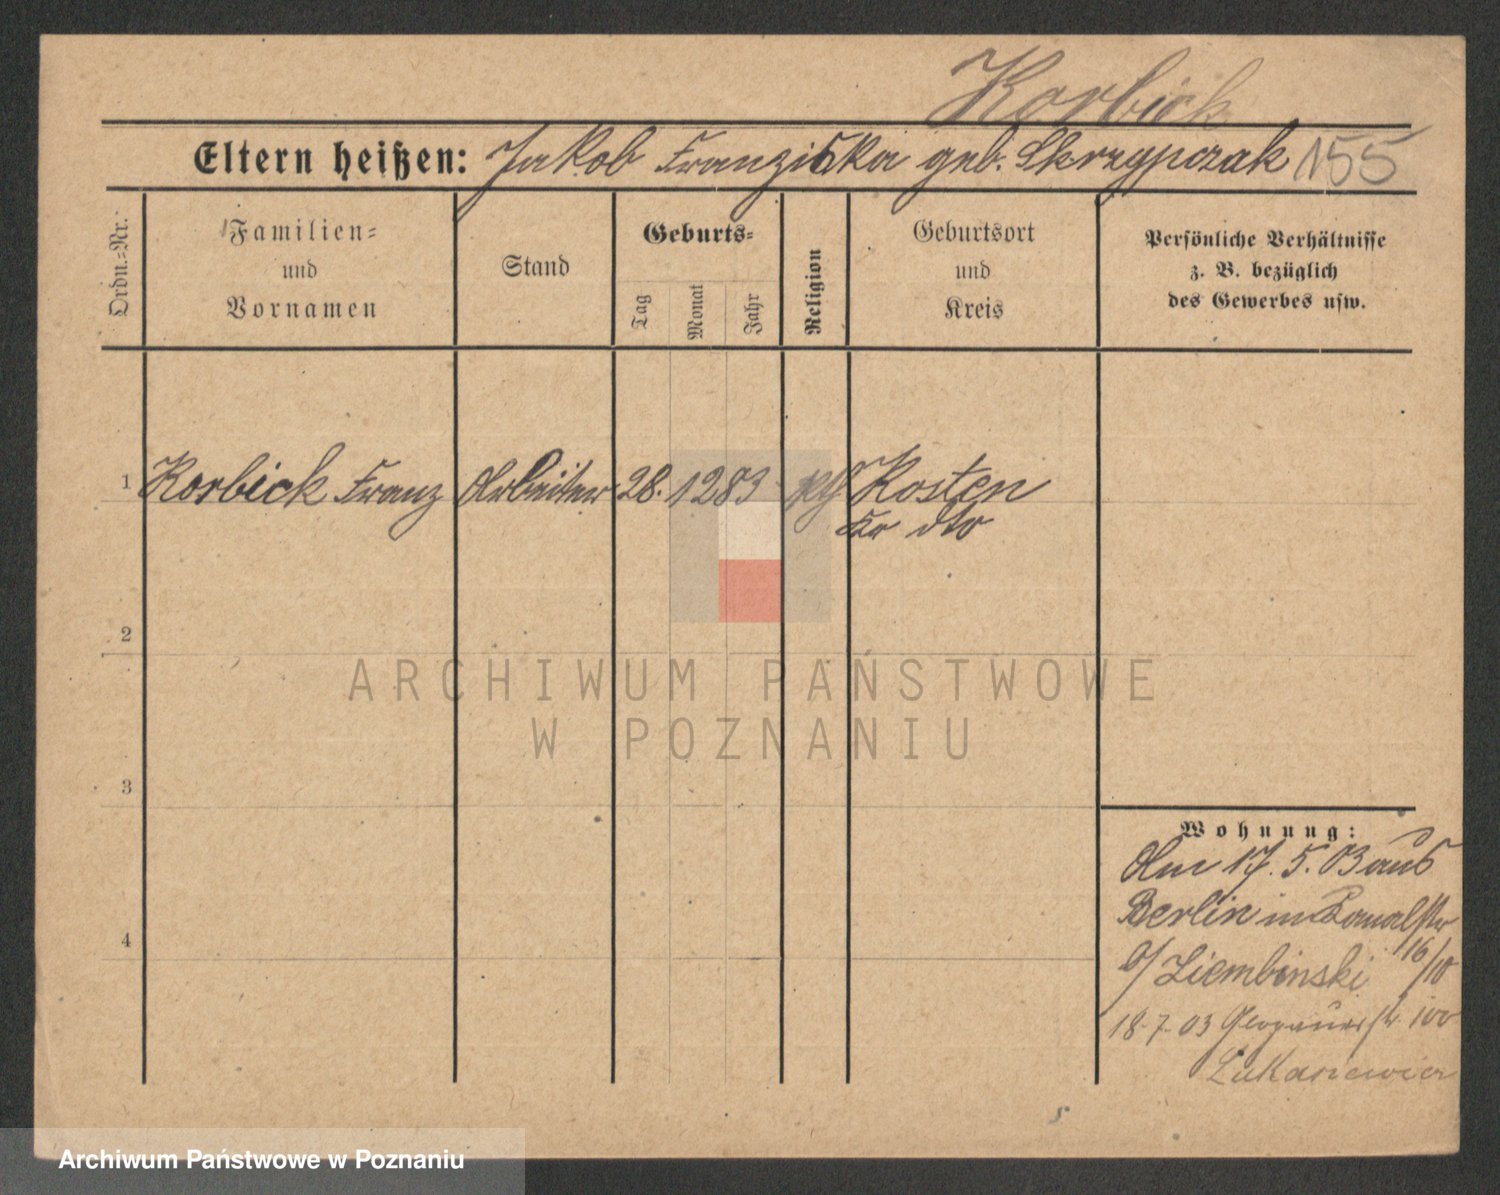 Korbick
Eltern heißen: Jakob Franziska geb. Skrzypczak 155
Ordn.-Nr.
Familien-
und
Vornamen
Stand
Geburts-
Tag
Monat
Jahr
Religion
Geburtsort
und
Kreis
Persönliche Verhältnisse
z. B. bezüglich
des Gewerbes usw.
1 Korbick Franz Arbeiter 28. 12 83 Kosten
Kr dto
2
ARCHIWUM PAŃSTWOWE
W POZNANIU
3
Wohnung:
Am 17. 5. 03 aus
Berlin in Kanalstr
16/18
b/ Ziembinski
4
18.7.03 100
Lukasiewicz
Archiwum Państwowe w Poznaniu